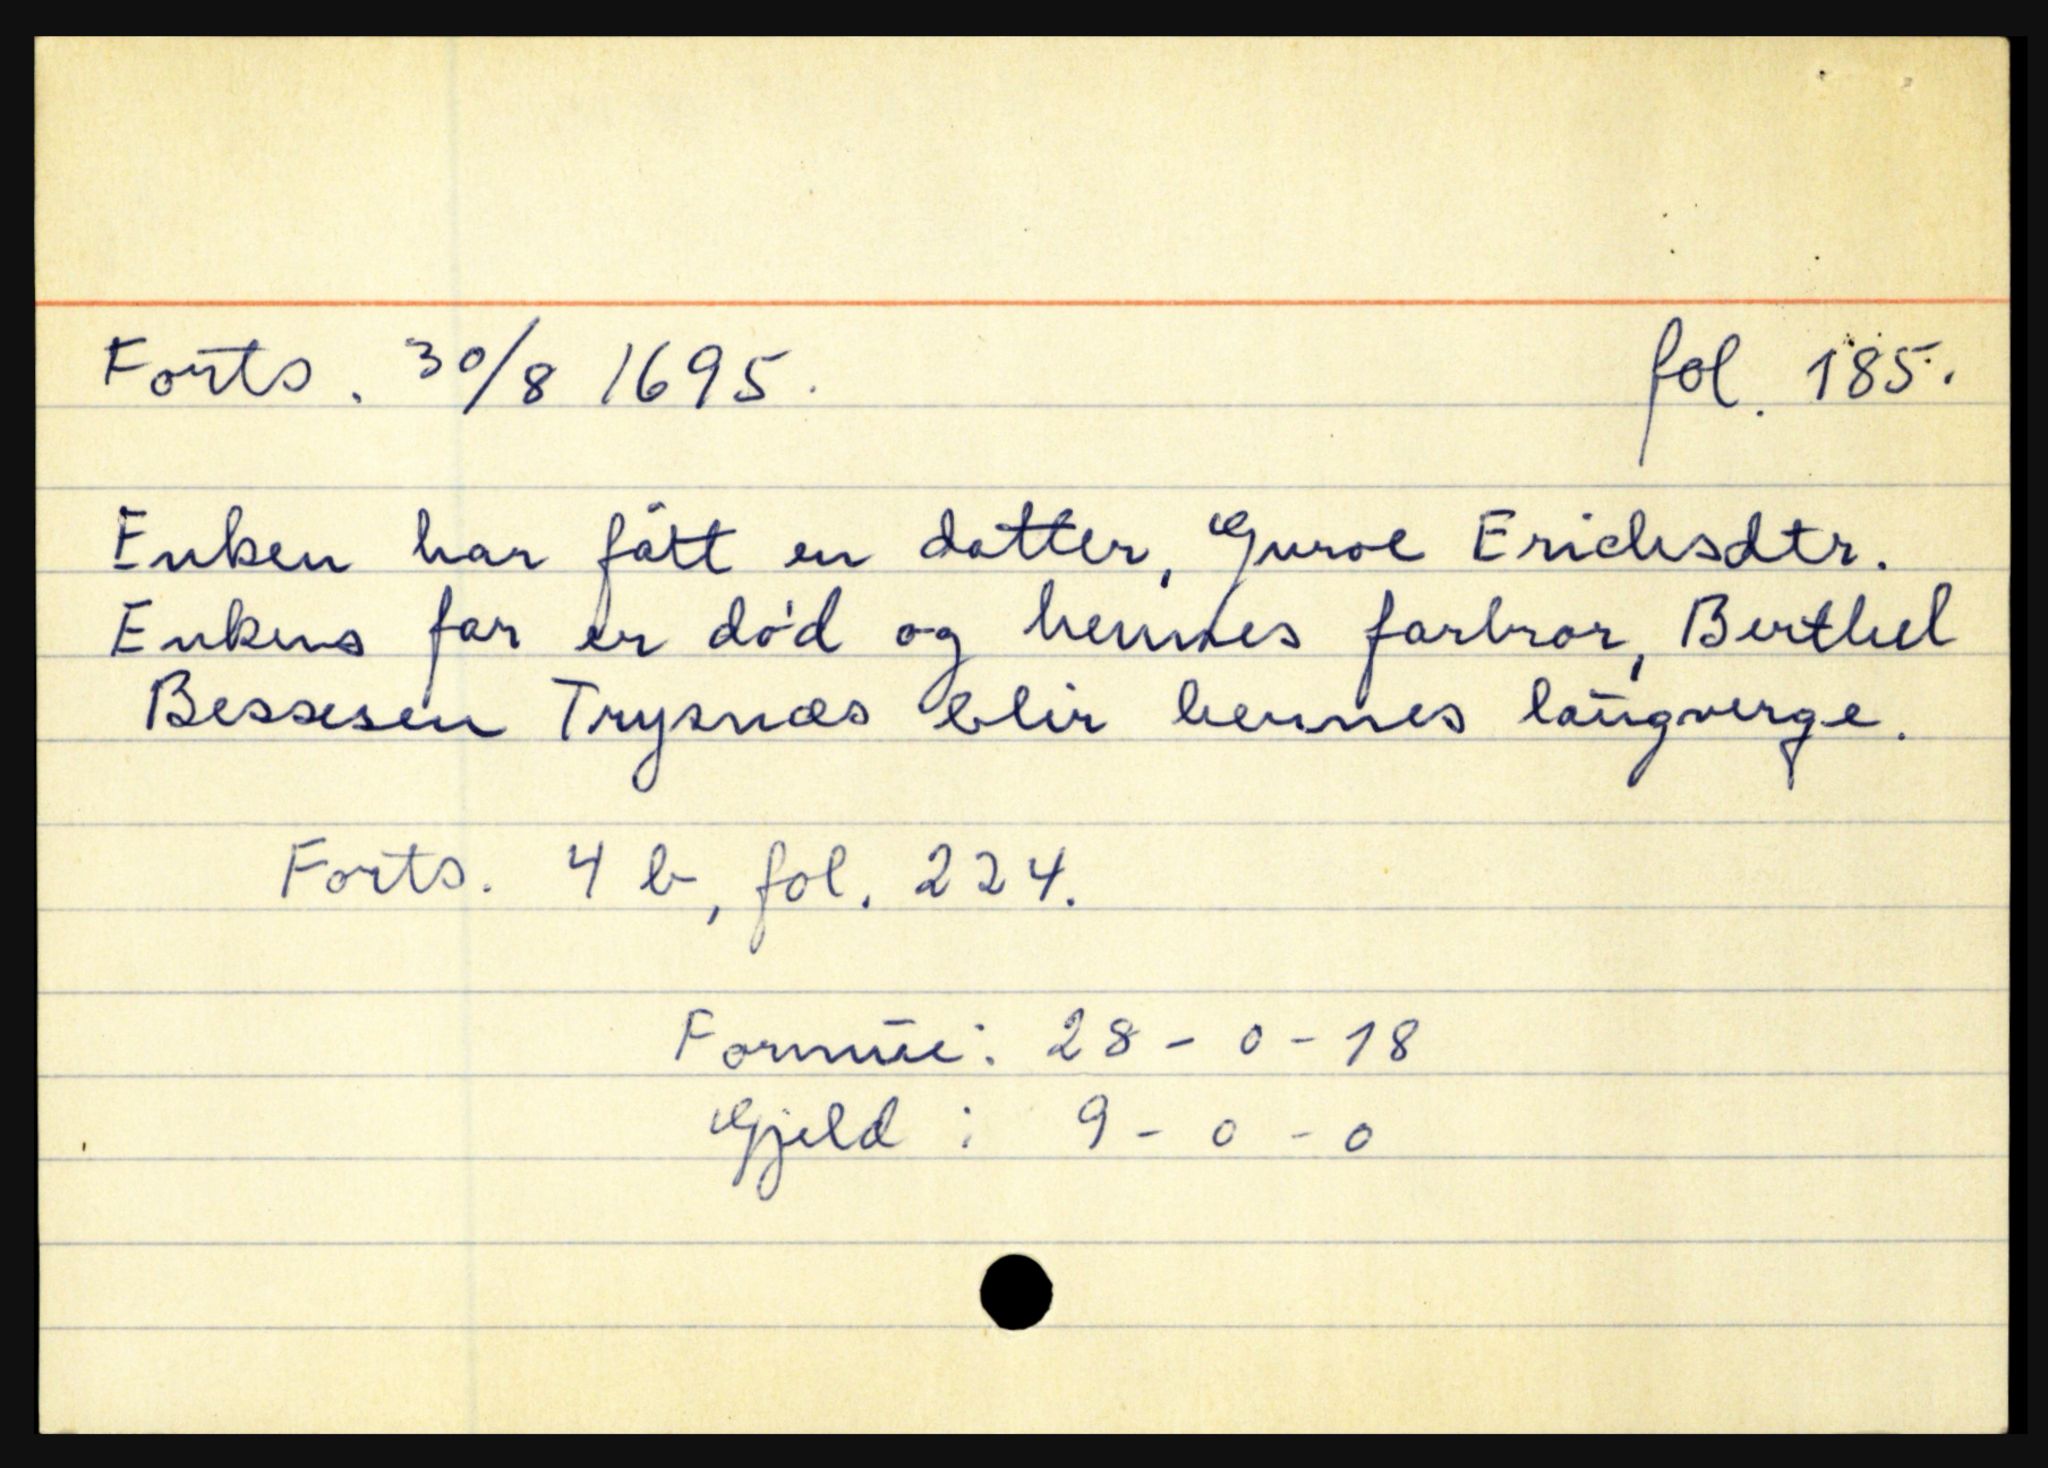 Forts. 30/8 1695. fol. 185.
Enken har fått en datter, Guroe Erichsdtr.
Enkens far er død og hennes farbror, Berthel
Bessesen Trysnæs blir hennes laugverge.
Forts. 4 b, fol. 224.
Formue: 28 - 0 - 18
Gjeld : 9 - 0 - 0